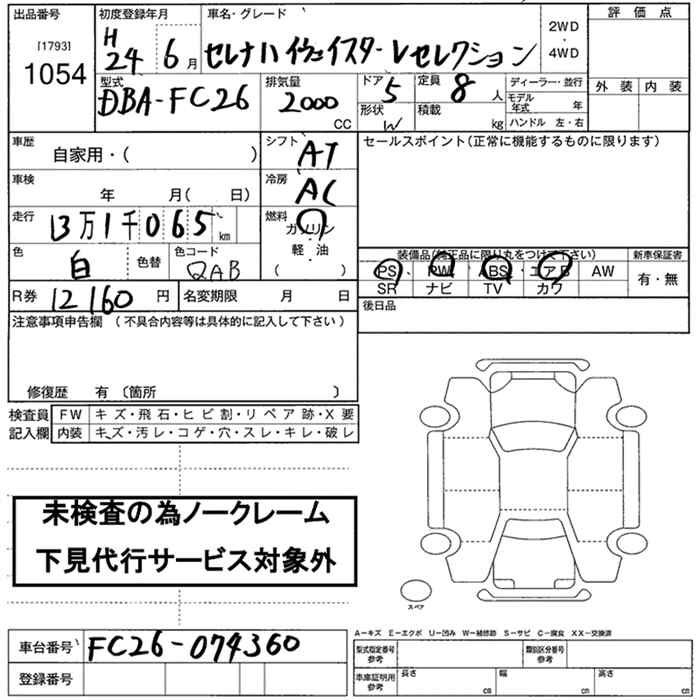 出品番号 初度登録年月 車名・グレード 評価点
[1793] 1054 H 24 6月 セレナハイウェイスターVセレクション 2WD・4WD
外装 内装
型式 DBA-FC26 排気量 2000 CC ドア 5 定員 8人 ディーラー・並行
形状 W 積載 kg モデル年式 年
ハンドル 左・右
車歴 自家用・( ) シフト AT セールスポイント(正常に機能するものに限ります)
車検 年 月( 日) 冷房 AC
走行 13万1千065km 燃料 ガソリン・軽・油 ( )
色 白 色替 色コード QAB
装備品(純正品に限り丸をつけて下さい) 新車保証書
PS、PW、ABS・エアB AW 有・無
SR ナビ TV カワ
R券 12160円 名変期限 月 日 後日品
注意事項申告欄 (不具合内容等は具体的に記入して下さい)
修復歴 有 〔箇所 〕
検査員 FW キズ・飛石・ヒビ割・リペア跡・X要
記入欄 内装 キズ・汚レ・コゲ・穴・スレ・キレ・破レ
未検査の為ノークレーム
下見代行サービス対象外
スペア
A-キズ E-エクボ U-凹み W-補修跡 S-サビ C-腐食 XX-交換済
車台番号 FC26-074360 型式指定番号 参考 類別区分番号 参考
登録番号 車庫証明用 参考 長さ cm 幅 cm 高さ cm